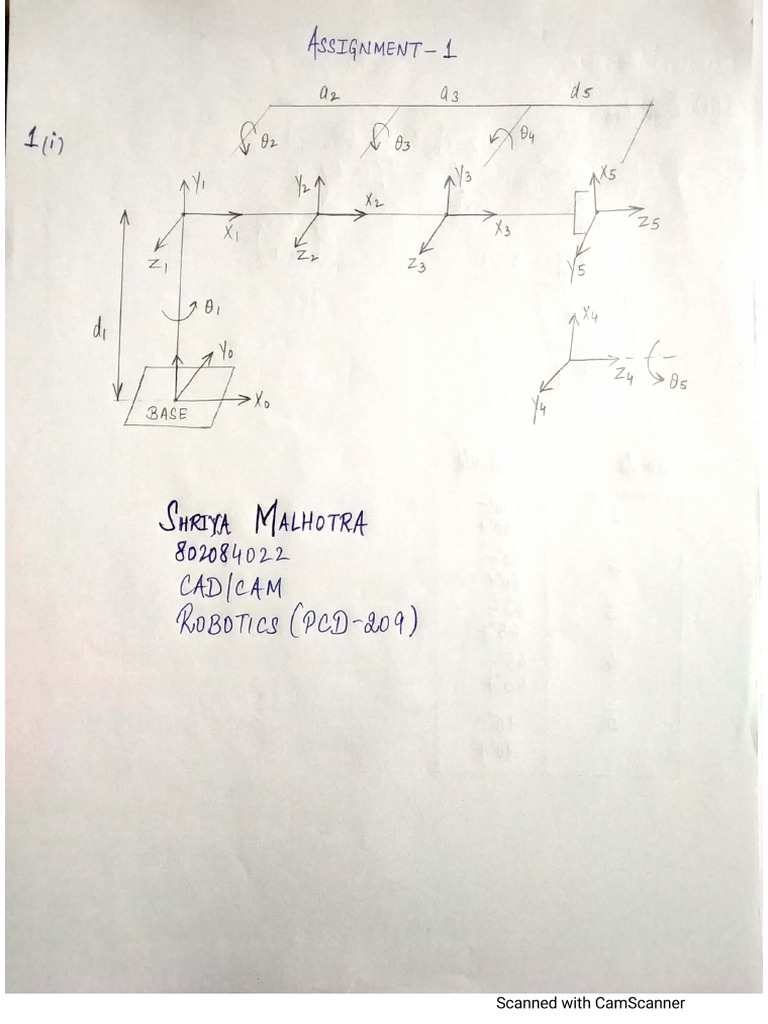 ASSIGNMENT-1
a2 a3 d5
1(i)
θ2 θ3 θ4
Y1 Y2 Y3 X5
X1 X2 X3 Z5
Z1 Z2 Z3 Y5
θ1
d1
Y0
X0
BASE
X4
Z4 θ5
Y4
SHRIYA MALHOTRA
802084022
CAD/CAM
ROBOTICS (PCD-209)
Scanned with CamScanner